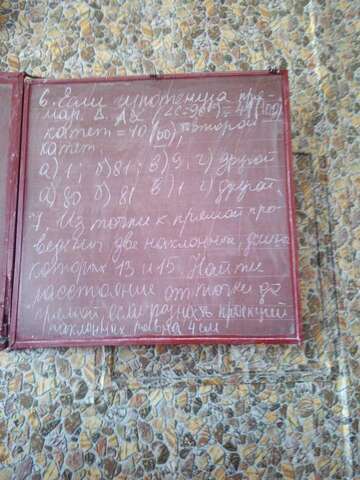 6. Если гипотенуза пря-
мар. Δ
катет = 10 второй
катет:
а) 1; б) 81; в) 9; г) другой
а) 80 б) 81 в) 1 г) другой.
7 Из точки к прямой про-
ведены две наклонные, длина
которых 13 и 15. Найти
расстояние от точки до
прямой, если разность проекций
наклонных равна 4 см